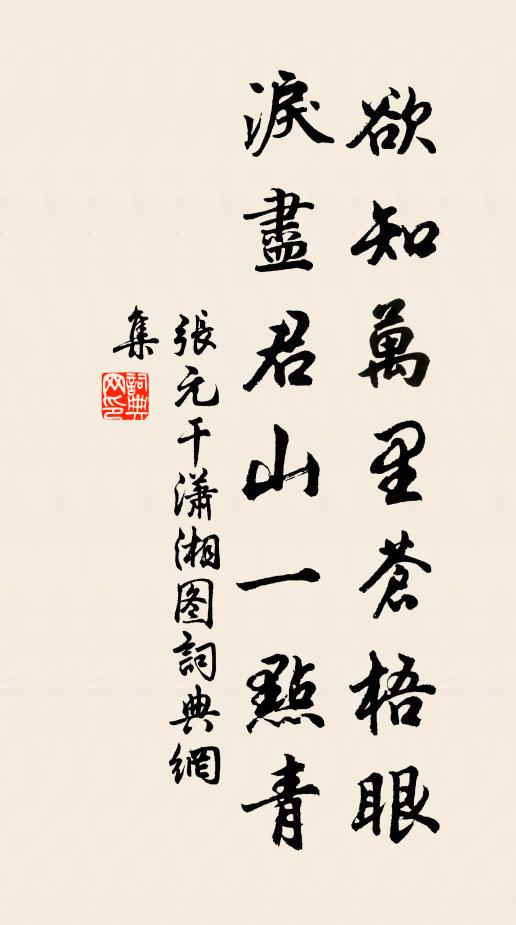 欲知萬里蒼梧眼
淚盡君山一點青
張元干瀟湘图詞典網
集
詞典网印